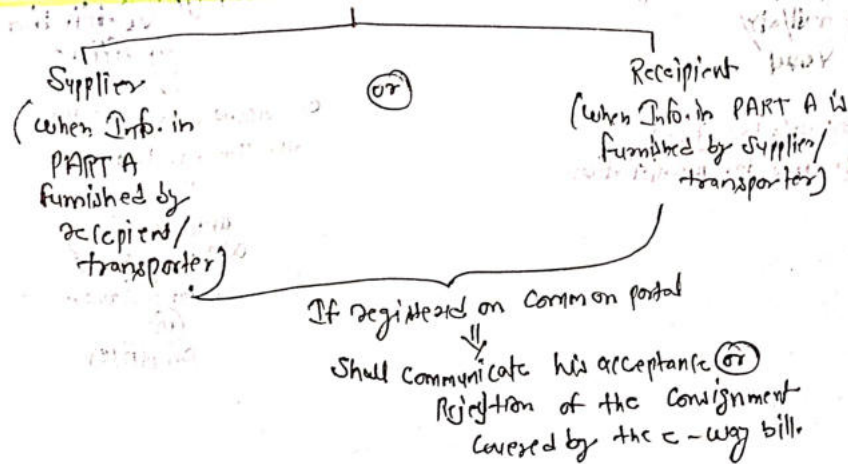 Supplier
(when Info. in
PART A
furnished by
recepient/
transporter)
or
Receipient
(when Info. in PART A is
furnished by supplier/
transporter)
If registered on common portal
⇓
Shall communicate his acceptance or
Rejection of the consignment
covered by the e-way bill.